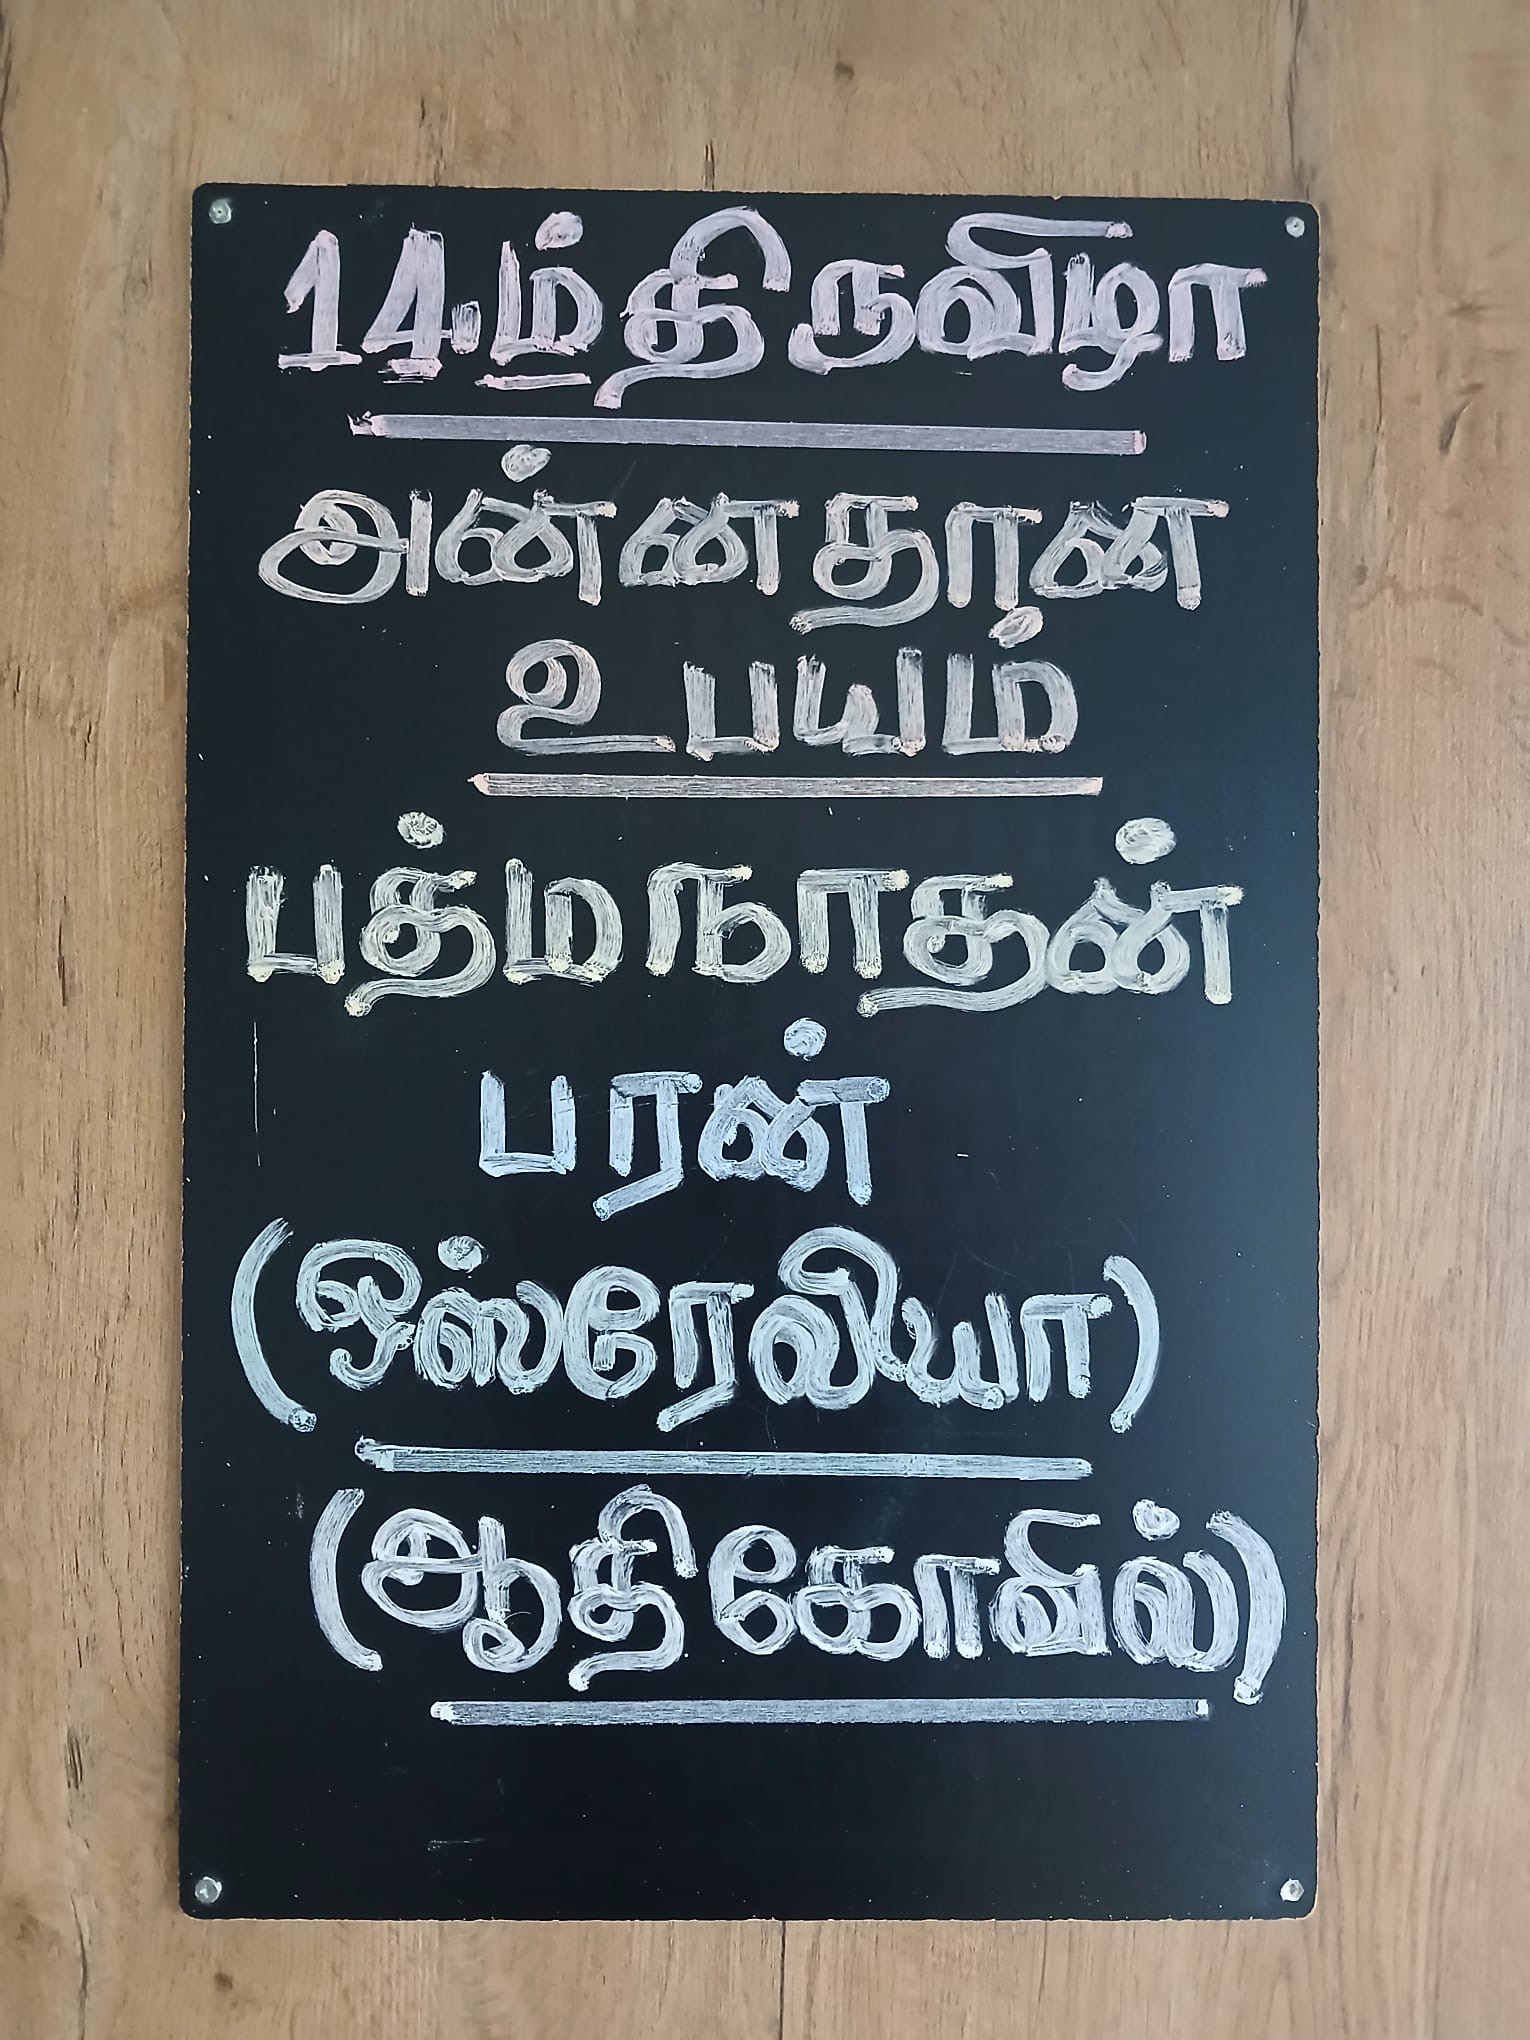 14.ம் திருவிழா
அன்னதான
உபயம்
பத்மநாதன்
பரன்
(ஒஸ்ரேலியா)
(ஆதி கோவில்)